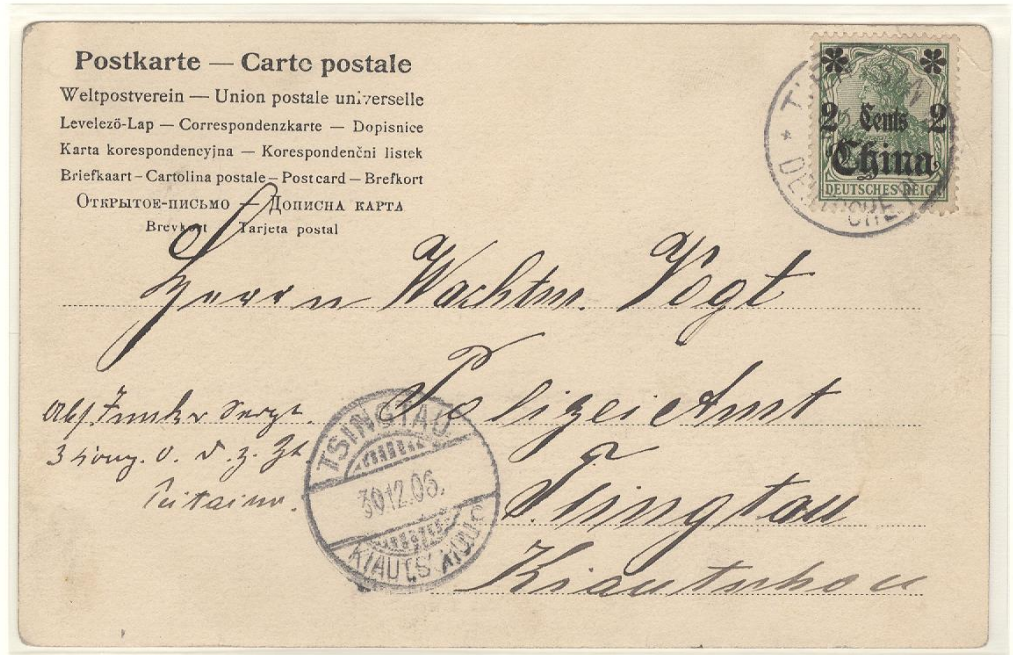 Postkarte — Carte postale
Weltpostverein — Union postale universelle
Levelezö-Lap — Correspondenzkarte — Dopisnice
Karta korespondencyjna — Korespondenční listek
Briefkaart - Cartolina postale - Post card - Brefkort
Открытое-письмо — Дописна карта
Brevkort Tarjeta postal
2 Cents 2
China
DEUTSCHES REICH
Herrn Wachtm. Vogt
Polizei Amt
Tsingtau
Kiautschou
Abs.
3
TSINGTAU
30.12.06.
KIAUTSCHOU